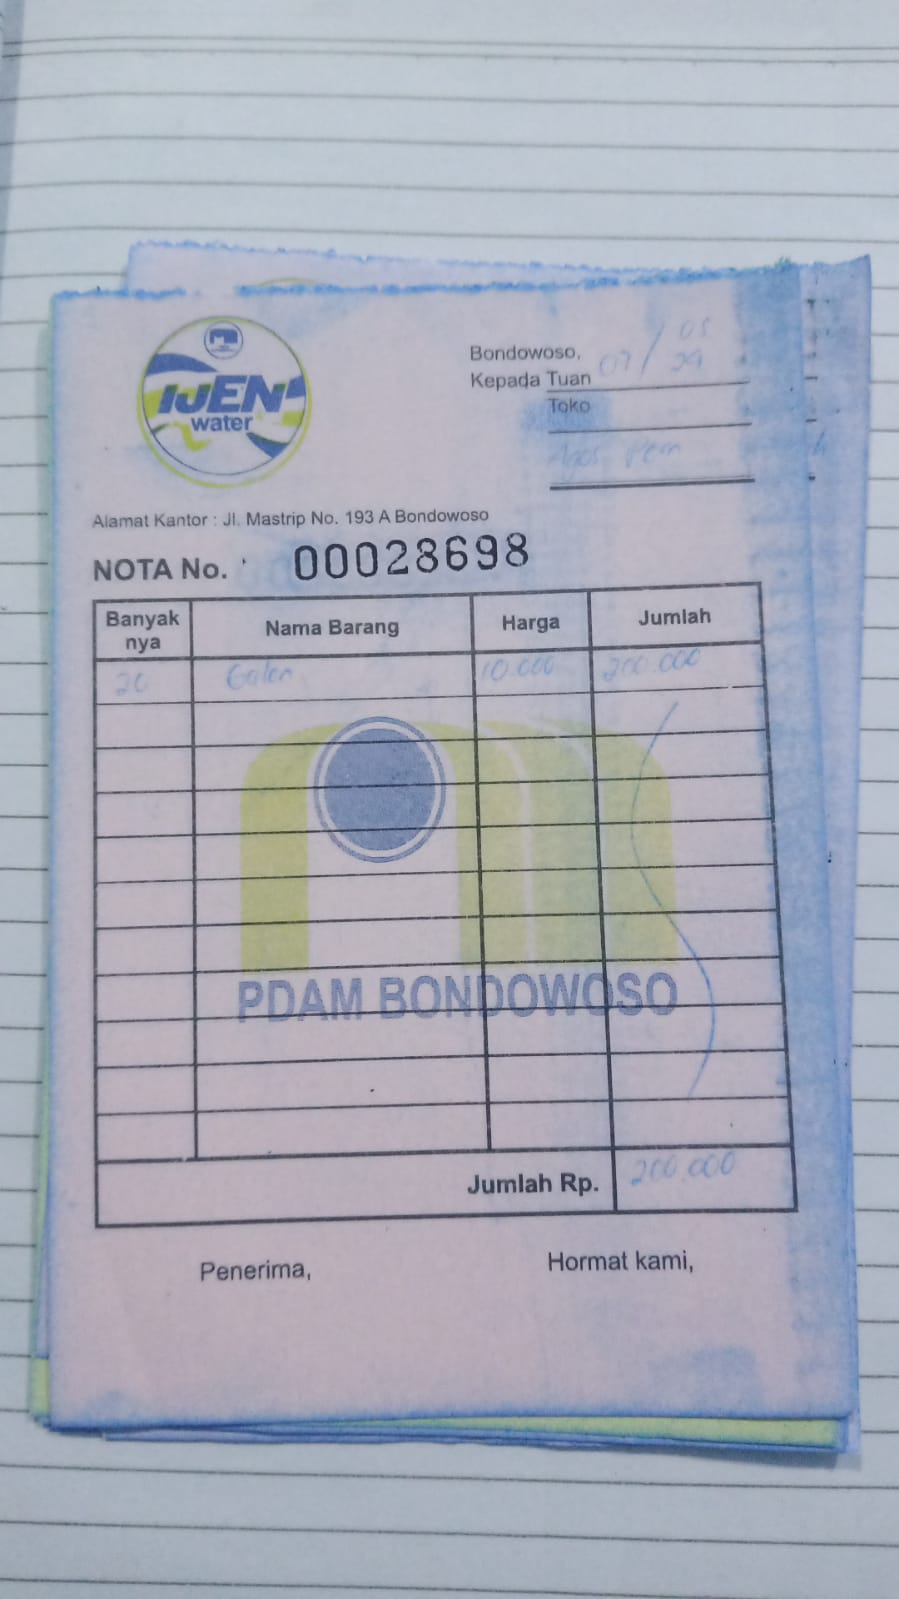 IJEN
water
Bondowoso, 07/05
Kepada Tuan
Toko
Alamat Kantor : Jl. Mastrip No. 193 A Bondowoso
NOTA No. 00028698
Banyak nya Nama Barang Harga Jumlah
20 Galon 10.000 200.000
PDAM BONDOWOSO
Jumlah Rp. 200.000
Penerima, Hormat kami,